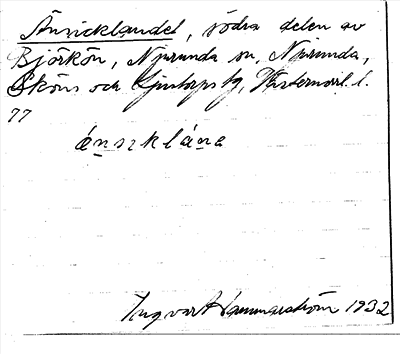 Änsicklandet, södra delen av
Björkön, Njurunda sn, Njurunda,
Sköns och Ljustorps tg, Västernorrl. l.
77
ánsıklána
Ingvar Hammarström 1932